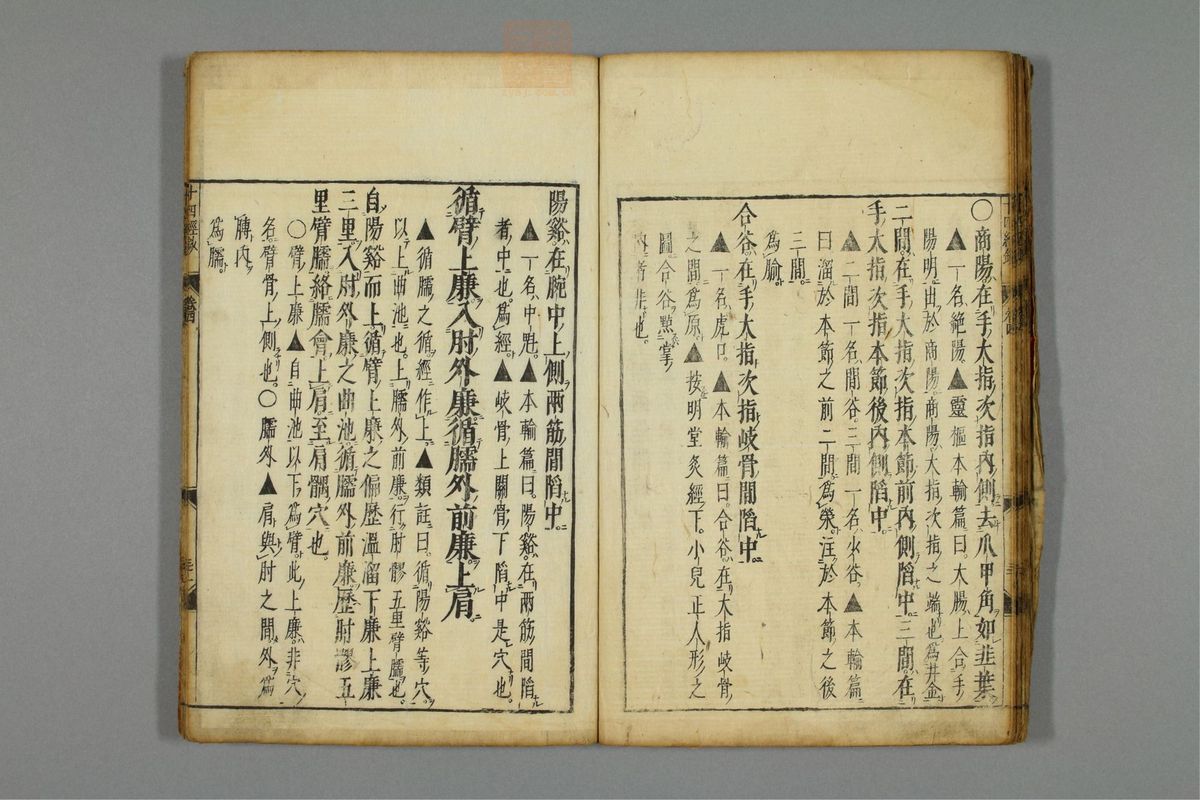 〇商陽在手大指次指內側去爪甲角如韭葉
▲一名絶陽▲靈樞本輸篇曰大腸上合手
陽明出於商陽商陽大指次指之端也爲井金
二間在手大指次指本節前內側陷中三間在
手大指次指本節後內側陷中
▲二間一名間谷三間一名少谷▲本輸篇
曰溜於本節之前二間爲滎注於本節之後
三間爲腧
合谷在手大指次指岐骨間陷中
▲一名虎口▲本輸篇曰合谷在大指岐骨
之間爲原▲按明堂灸經下小兒正人形之
圖合谷㸃掌
內者非也
陽谿在腕中上側兩筋間陷中
▲一名中魁▲本輸篇曰陽谿在兩筋間陷
者中也爲經▲岐骨上關骨下陷中是穴也
循臂上廉入肘外廉循臑外前廉上肩
▲循臑之循經作上▲類註曰循陽谿等穴
以上曲池也上臑外前廉行肘髎五里臂臑也
自陽谿而上循臂上廉之偏歷溫溜下廉上廉
三里入肘外廉之曲池循臑外前廉歷肘髎五
里臂臑絡臑會上肩至肩髃穴也
〇臂上廉▲自曲池以下爲臂此上廉非穴
名臂骨上側也〇臑外▲肩與肘之間外篇
膊內
爲臑
十四經
卷四